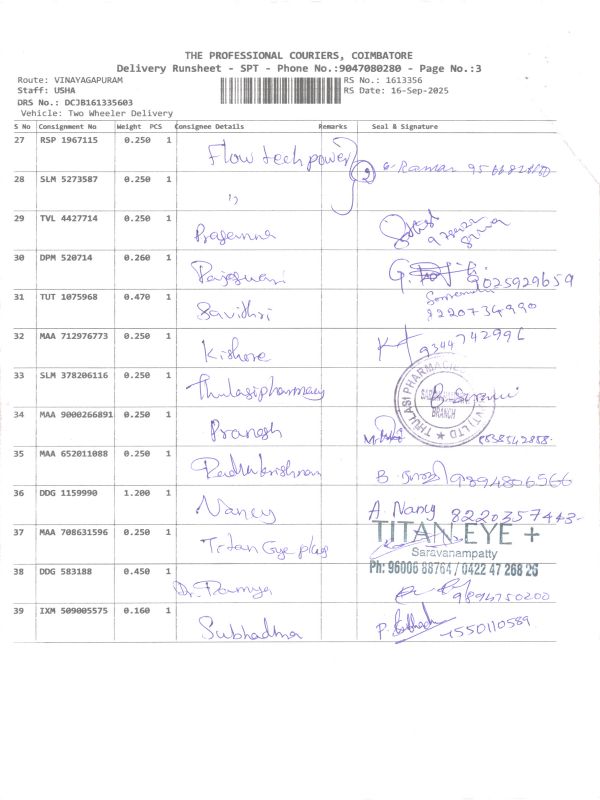 THE PROFESSIONAL COURIERS, COIMBATORE
Delivery Runsheet - SPT - Phone No.:9047080280 - Page No.:3
Route: VINAYAGAPURAM RS No.: 1613356
Staff: USHA RS Date: 16-Sep-2025
DRS No.: DCJB161335603
Vehicle: Two Wheeler Delivery
S No Consignment No Weight PCS Consignee Details Remarks Seal & Signature
27 RSP 1967115 0.250 1 Flow tech power
28 SLM 5273587 0.250 1 " 2 Raman
29 TVL 4427714 0.250 1
30 DPM 520714 0.260 1 9025929659
31 TUT 1075968 0.470 1 Savidhri 8220734990
32 MAA 712976773 0.250 1 Kishore 9344742996
33 SLM 378206116 0.250 1 Thulasi pharmacy
THULASI PHARMACIES BRANCH
34 MAA 9000266891 0.250 1 Pranesh
35 MAA 652011088 0.250 1 Radhakrishnan B. 9894806566
36 DDG 1159990 1.200 1 Nancy A. Nancy 8220357443
37 MAA 708631596 0.250 1 Titan Eye plus
TITAN EYE +
Saravanampatty
Ph: 96006 88764 / 0422 47 268 26
38 DDG 583188 0.450 1 Dr. Ramya 9894750200
39 IXM 509005575 0.160 1 Subhadhra P. 7550110589